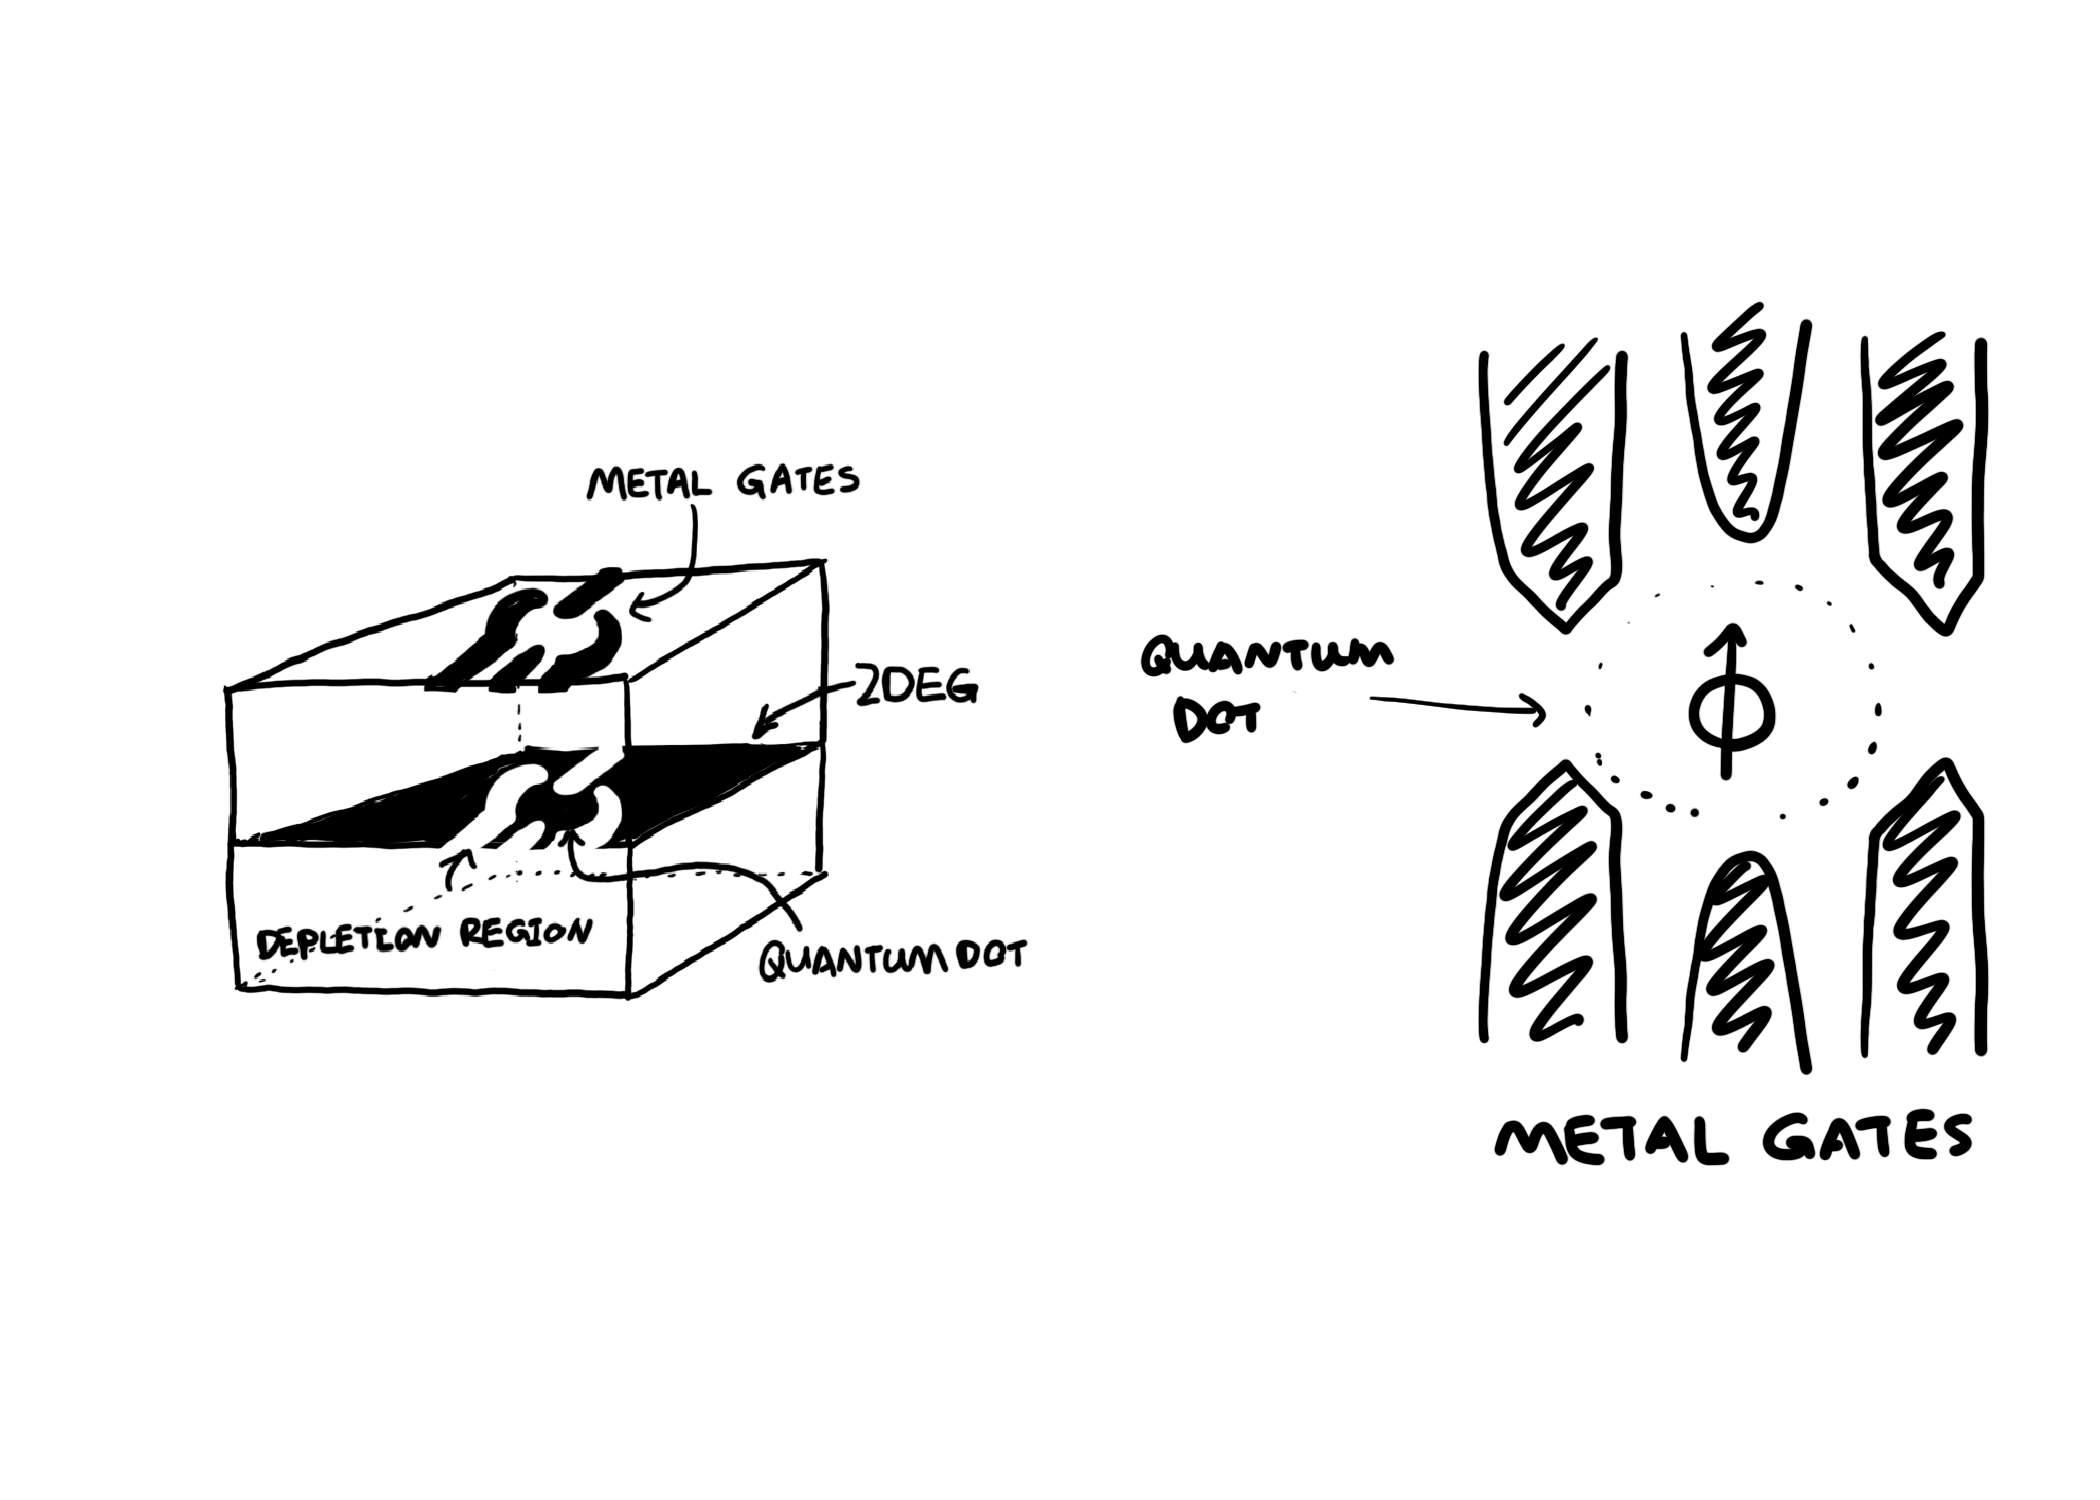 METAL GATES
2DEG
DEPLETION REGION
QUANTUM DOT
QUANTUM
DOT
METAL GATES